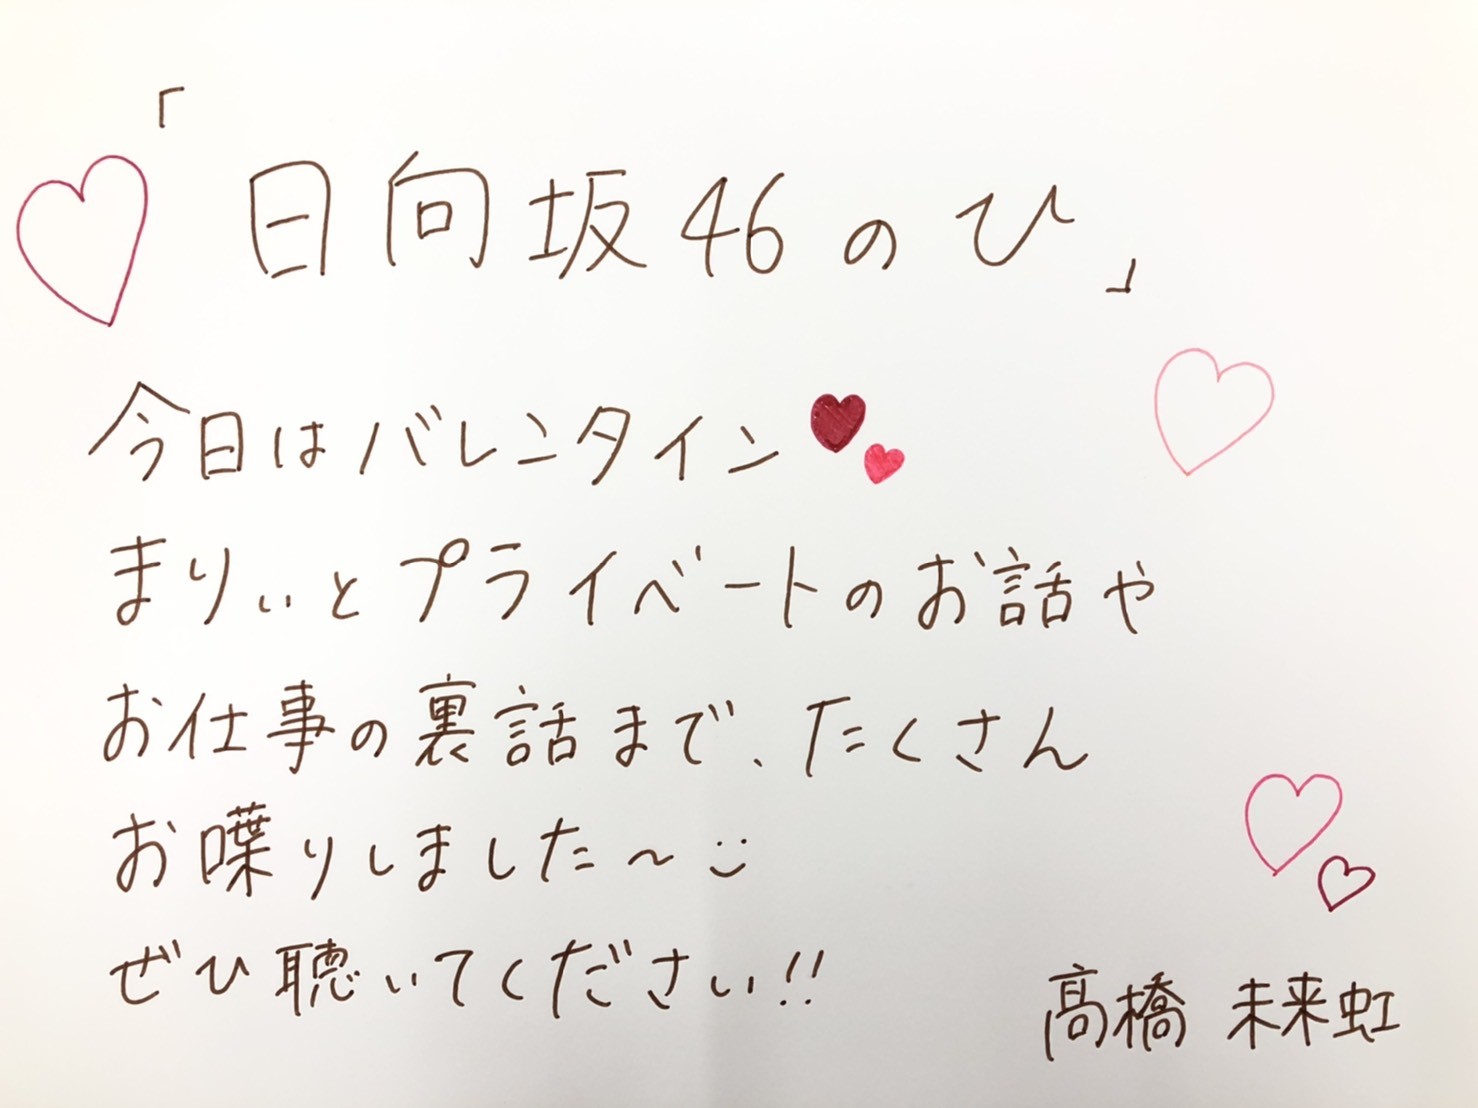 「日向坂46のひ」
今日はバレンタイン
まりぃとプライベートのお話や
お仕事の裏話まで、たくさん
お喋りしました〜
ぜひ聴いてください!!
髙橋 未来虹